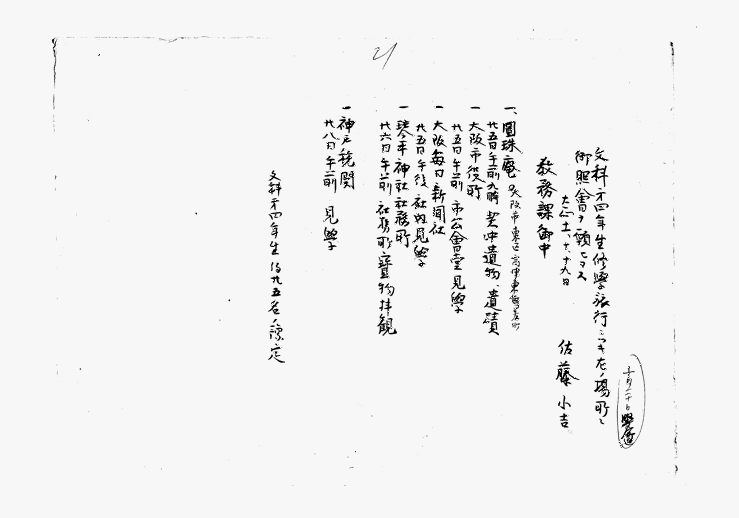 21
文科第四年生修学旅行ニツキ左ノ場所ニ
御照會ヲ願ヒマス
大正十一、十、十九日
佐藤小吉
教務課御中
一、圓珠庵 大阪市東区
廿五日午前九時 契沖遺物、遺蹟
一 大阪市役所
廿五日午前 市公會堂見學
一 大阪毎日新聞社
廿五日午後 社内見學
一 神社社務所
廿六日午前 社務所寶物拝観
一 神戸税関
廿八日午前 見學
文科第四年生 廿五名ノ豫定